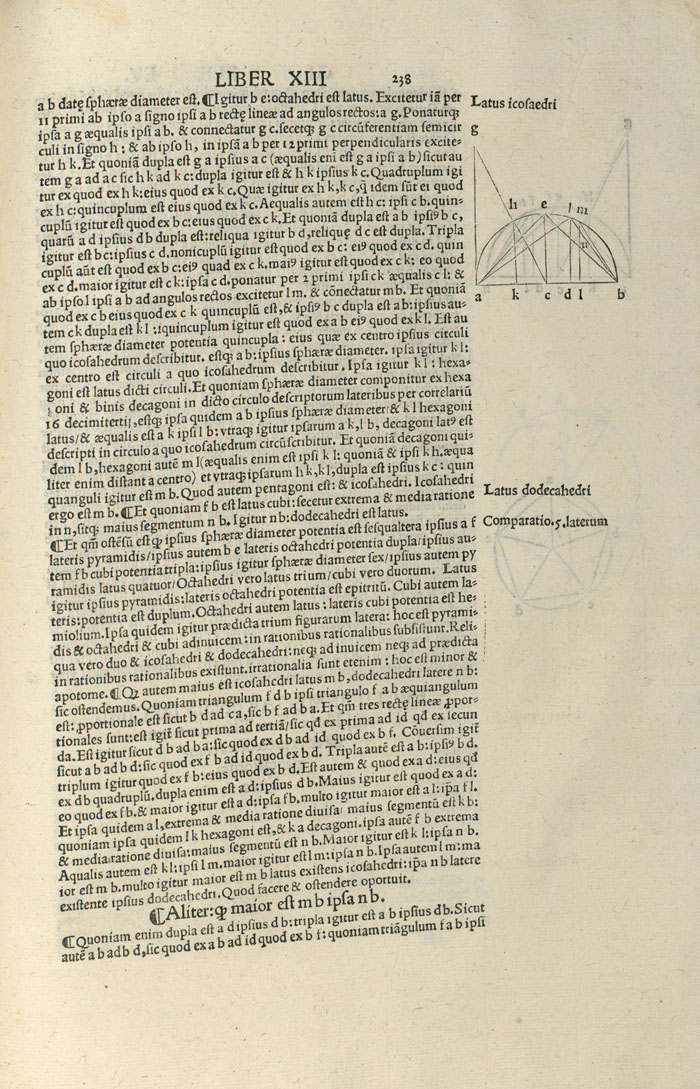 LIBER XIII 238
a b datę sphæræ diameter est. ⁋Igitur b e: octahedri est latus. Excitetur iā per
11 primi ab ipso a signo ipsi a b rectę lineæ ad angulos rectos: a g. Ponaturq;
ipsa a g æqualis ipsi a b. & connectatur g c. secetq; g c circūferentiam semicir
culi in signo h: & ab ipso h, in ipsā a b per 12 primi perpendicularis excite-
tur h k. Et quoniā dupla est g a ipsius a c (æqualis eni est g a ipsi a b) sicut au
tem g a ad a c sic h k ad k c: dupla igitur est & h k ipsius k c. Quadruplum igi
tur ex quod ex h k: eius quod ex k c. Quæ igitur ex h k, k c, q̄ idem sūt ei quod
ex h c: quincuplum est eius quod ex k c. Aequalis autem est h c: ipsi c b. quin-
cuplū igitur est quod ex b c: eius quod ex c k. Et quoniā dupla est a b ipsiꝰ b c,
quarū a d ipsius d b dupla est: reliqua igitur b d, reliquę d c est dupla. Tripla
igitur est b c: ipsius c d. nonicuplū igitur est quod ex b c: eiꝰ quod ex c d. quin
cuplū aūt est quod ex b c: eiꝰ quad ex c k. maiꝰ igitur est quod ex c k: eo quod
ex c d. maior igitur est c k: ipsa c d. ponatur per 2 primi ipsi c k æqualis c l: &
ab ipso l ipsi a b ad angulos rectos excitetur l m. & cōnectatur m b. Et quoniā
quod ex c b eius quod ex c k quincuplū est, & ipsiꝰ b c dupla est a b: ipsius au-
tem c k dupla est k l: quincuplum igitur est quod ex a b eiꝰ quod ex k l. Est au
tem sphæræ diameter potentia quincupla: eius quæ ex centro ipsius circuli
quo icosahedrum describitur. estq; a b: ipsius sphæræ diameter. ipsa igitur k l:
ex centro est circuli a quo icosahedrum describitur. Ipsa igitur k l: hexa-
goni est latus dicti circuli. Et quoniam sphæræ diameter componitur ex hexa
goni & binis decagoni in dicto circulo descriptorum lateribus per correlariū
16 decimitertij, estq; ipsa quidem a b ipsius sphæræ diameter/ & k l hexagoni
latus/ & æqualis est a k ipsi l b: vtraq; igitur ipsarum a k, l b, decagoni latꝰ est
descripti in circulo a quo icosahedrum circūscribitur. Et quoniā decagoni qui-
dem l b, hexagoni autē m l (æqualis enim est ipsi k l: quoniā & ipsi k h. æqua
liter enim distant a centro) et vtraq; ipsarum h k, k l, dupla est ipsius k c: quin
quanguli igitur est m b. Quod autem pentagoni est: & icosahedri. Icosahedri
ergo est m b. ⁋Et quoniam f b est latus cubi: secetur extrema & media ratione
in n, sitq; maius segmentum n b. Igitur n b: dodecahedri est latus.
⁋Et qm̄ ostēsū est q; ipsius sphæræ diameter potentia est sesqualtera ipsius a f
lateris pyramidis/ ipsius autem b e lateris octahedri potentia dupla/ ipsius au-
tem f b cubi potentia tripla: ipsius igitur sphæræ diameter sex/ ipsius autem py
ramidis latus quatuor/ Octahedri vero latus trium/ cubi vero duorum. Latus
igitur ipsius pyramidis: lateris octahedri potentia est epitritū. Cubi autem la-
teris: potentia est duplum. Octahedri autem latus: lateris cubi potentia est he
miolium. Ipsa quidem igitur prædicta trium figurarum latera: hoc est pyrami-
dis & octahedri & cubi adinuicem: in rationibus rationalibus subsistunt. Reli-
qua vero duo & icosahedri & dodecahedri: neq; ad inuicem neq; ad prædicta
in rationibus rationalibus existunt. irrationalia sunt etenim: hoc est minor &
apotome. ⁋Qꝫ autem maius est icosahedri latus m b, dodecahedri latere n b:
sic ostendemus. Quoniam triangulum f d b ipsi triangulo f a b æquiangulum
est: ꝓportionale est sicut b d ad c a, sic b f ad b a. Et qm̄ tres rectę lineæ ꝓpor-
tionales sunt: est igit̄ sicut prima ad tertiā/ sic qd̄ ex prima ad id qd̄ ex secun
da. Est igitur sicut d b ad b a: sic quod ex d b ad id quod ex b f. Cōuersim igit̄
sicut a b ad b d: sic quod ex f b ad id quod ex b d. Tripla autē est a b: ipsiꝰ b d.
triplum igitur quod ex f b: eius quod ex b d. Est autem & quod ex a d: eius qd̄
ex d b quadruplū. dupla enim est a d: ipsius d b. Maius igitur est quod ex a d:
eo quod ex f b. & maior igitur est a d: ipsa f b. multo igitur maior est a l: ip̄a f l.
Et ipsa quidem a l, extrema & media ratione diuisa/ maius segmentū est k b:
quoniam ipsa quidem l k hexagoni est, & k a decagoni. ipsa autē f b extrema
& media ratione diuisa: maius segmentū est n b. Maior igitur est k l: ipsa n b.
Aqualis autem est k l: ipsi l m. maior igitur est l m: ipsa n b. Ipsa autem l m: ma
ior est m b. multo igitur maior est m b latus existens icosahedri: ip̄a n b latere
existente ipsius dodecahedri. Quod facere & ostendere oportuit.
⁋Aliter: q; maior est m b ipsa n b.
⁋Quoniam enim dupla est a d ipsius d b: tripla igitur est a b ipsius d b. Sicut
autē a b ad b d, sic quod ex a b ad id quod ex b f: quoniam triāgulum f a b ipsi
Latus icosaedri
g
h e l m
n
a k c d l b
Latus dodecahedri
Comparatio. 5. laterum